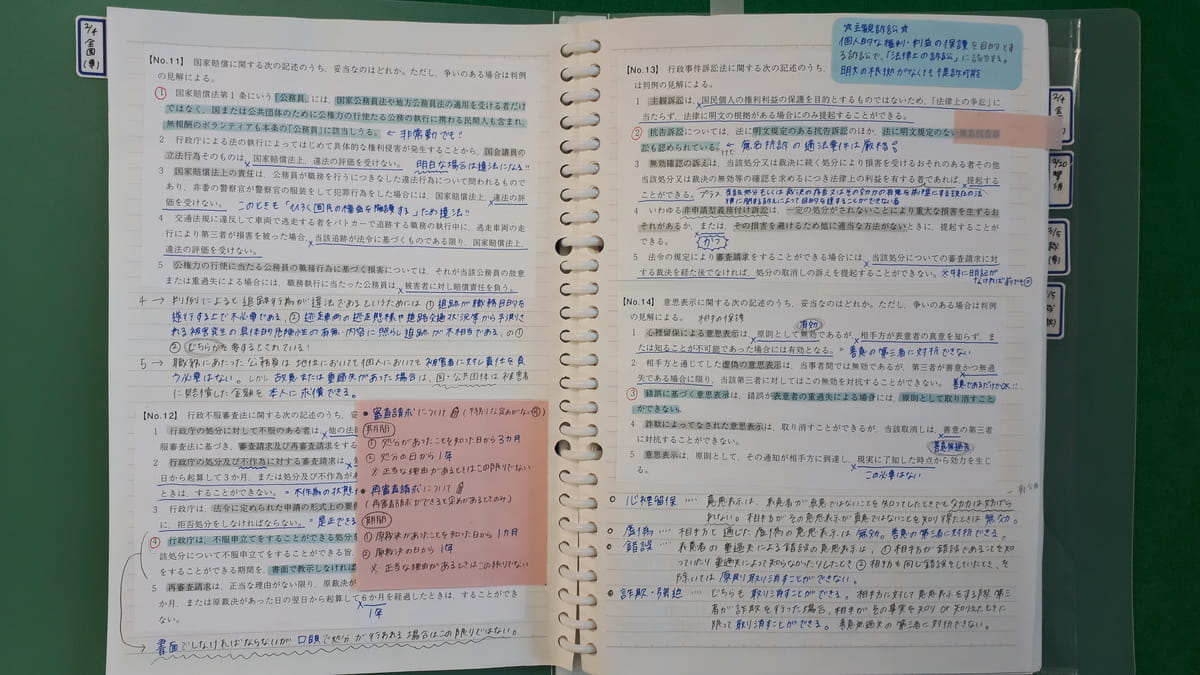 2/4
全国
(専)
【No.11】 国家賠償に関する次の記述のうち、妥当なのはどれか。ただし、争いのある場合は判例
の見解による。
1 国家賠償法第1条にいう「公務員」には、国家公務員法や地方公務員法の適用を受ける者だけ
ではなく、国または公共団体のために公権力の行使たる公務の執行に携わる民間人も含まれ、
無報酬のボランティアも本条の「公務員」に該当しうる。 ← 非常勤でも!!
2 行政庁による法の執行によってはじめて具体的な権利侵害が発生することから、国会議員の
立法行為そのものは、国家賠償法上、違法の評価を受けない。 明白な場合は違法になる!!
3 国家賠償法上の責任は、公務員が職務を行うにつきなした違法行為について問われるもので
あり、非番の警察官が警察官の服装をして犯罪行為をした場合には、国家賠償法上、違法の評
価を受けない。 このときも「ひろく国民の権益を擁護する」ため違法!!
4 交通法規に違反して車両で逃走する者をパトカーで追跡する職務の執行中に、逃走車両の走
行により第三者が損害を被った場合、当該追跡が法令に基づくものである限り、国家賠償法上、
違法の評価を受けない。
5 公権力の行使に当たる公務員の職務行為に基づく損害については、それが当該公務員の故意
または重過失による場合には、職務執行に当たった公務員は、被害者に対し賠償責任を負う。
4 → 判例によると追跡行為が違法であるというためには ① 追跡が職務目的を
遂行する上で不必要である、② 逃走車両の逃走態様や道路交通状況等から予測さ
れる被害発生の具体的危険性の有無、内容に照らし追跡が不相当である、の①
② どちらかを要するとされている!
5 → 職務にあたった公務員は地位においても個人においても被害者に対し責任を負
う必要はない。しかし故意または重過失があった場合は、国・公共団体は被害者
に賠償した金額を本人に求償できる。
【No.12】 行政不服審査法に関する次の記述のうち、妥
1 行政庁の処分に対して不服のある者は、他の法
服審査法に基づき、審査請求及び再審査請求をする
2 行政庁の処分及び不作為に対する審査請求は、
日から起算して3か月、または処分及び不作為が
ときは、することができない。 = 不作為の状態
3 行政庁は、法令に定められた申請の形式上の要件
に、拒否処分をしなければならない。 = 是正できる
4 行政庁は、不服申立てをすることができる処分を
該処分について不服申立てをすることができる旨、
をすることができる期間を、書面で教示しなければ
5 再審査請求は、正当な理由がない限り、原裁決が
か月、または原裁決があった日の翌日から起算して6か月を経過したときは、することができ
ない。
1年
→ 書面でしなければならないが 口頭で処分が行われる場合はこの限りではない。
● 審査請求について
期間
① 処分があったことを知った日から3カ月
② 処分の日から 1年
※ 正当な理由があるときはこの限りでない
● 再審査請求について
(再審査請求ができると定めがあるときのみ)
期間
① 原裁決があったことを知った日から1カ月
② 原裁決の日から 1年
※ 正当な理由があるときはこの限りでない
☆主観訴訟☆
個人的な権利・利益の保護を目的とす
る訴訟で、「法律上の訴訟」に該当する。
明文の根拠がなくても提訴可能
【No.13】 行政事件訴訟法に関する次の記述のうち、
は判例の見解による。
1 主観訴訟は、国民個人の権利利益の保護を目的とするものではないため、「法律上の争訟」に
当たらず、法律に明文の根拠がある場合にのみ提起することができる。
2 抗告訴訟については、法に明文規定のある抗告訴訟のほか、法に明文規定のない無名抗告訴
訟も認められている。 ← 無名抗訴の適法要件は厳格
3 無効確認の訴えは、当該処分又は裁決に続く処分により損害を受けるおそれのある者その他
当該処分又は裁決の無効等の確認を求めるにつき法律上の利益を有する者であれば、提起する
ことができる。 プラス 当該処分もしくは裁決の存否又はその効力の有無を前提とする現在の法
律に関する訴えによって目的を達することができない者
4 いわゆる非申請型義務付け訴訟は、一定の処分がされないことにより重大な損害を生ずるお
それがあるか、または、その損害を避けるため他に適当な方法がないときに、提起することが
できる。 かつ
5 法令の規定により審査請求をすることができる場合には、当該処分についての審査請求に対
する裁決を経た後でなければ、処分の取消しの訴えを提起することができない。 ※特に明記が
なければ
【No.14】 意思表示に関する次の記述のうち、妥当なのはどれか。ただし、争いのある場合は判例
の見解による。 相手の保護
有効
1 心裡留保による意思表示は、原則として無効であるが、相手方が表意者の真意を知らず、ま
たは知ることが不可能であった場合には有効となる。 = 善意の第三者に対抗できない
2 相手方と通じてした虚偽の意思表示は、当事者間では無効であるが、第三者が善意かつ無過
失である場合に限り、当該第三者に対してはこの無効を対抗することができない。 善意であるだけでOK!!
3 錯誤に基づく意思表示は、錯誤が表意者の重過失による場合には、原則として取り消すこと
ができない。
4 詐欺によってなされた意思表示は、取り消すことができるが、当該取消しは、善意の第三者
に対抗することができない。 善意無過失
5 意思表示は、原則として、その通知が相手方に到達し、現実に了知した時点から効力を生じ
る。 この必要はない
○ 心裡留保 … 意思表示は、表意者が真意ではないことを知ってしたときでも効力は妨げら
れない。相手方がその意思表示が真意ではないことを知り得たときは 無効。
● 虚偽 … 相手方と通じた虚偽の意思表示は無効。善意の第三者に対抗できる。
● 錯誤 … 表意者の重過失による錯誤の意思表示は、① 相手方が錯誤であることを知
っていたり重過失によって知らなかったりしたとき ② 相手方も同じ錯誤をしていたとき、を
除いては 原則取り消すことができない。
● 詐欺・強迫 … どちらも取り消すことができる。相手方に対して意思表示をする際、第三
者が詐欺を行った場合、相手方がその事実を知り又は知りえたときに
限って取り消すことができる。善意無過失の第三者に対抗できない。
2/4
2/20
3/5